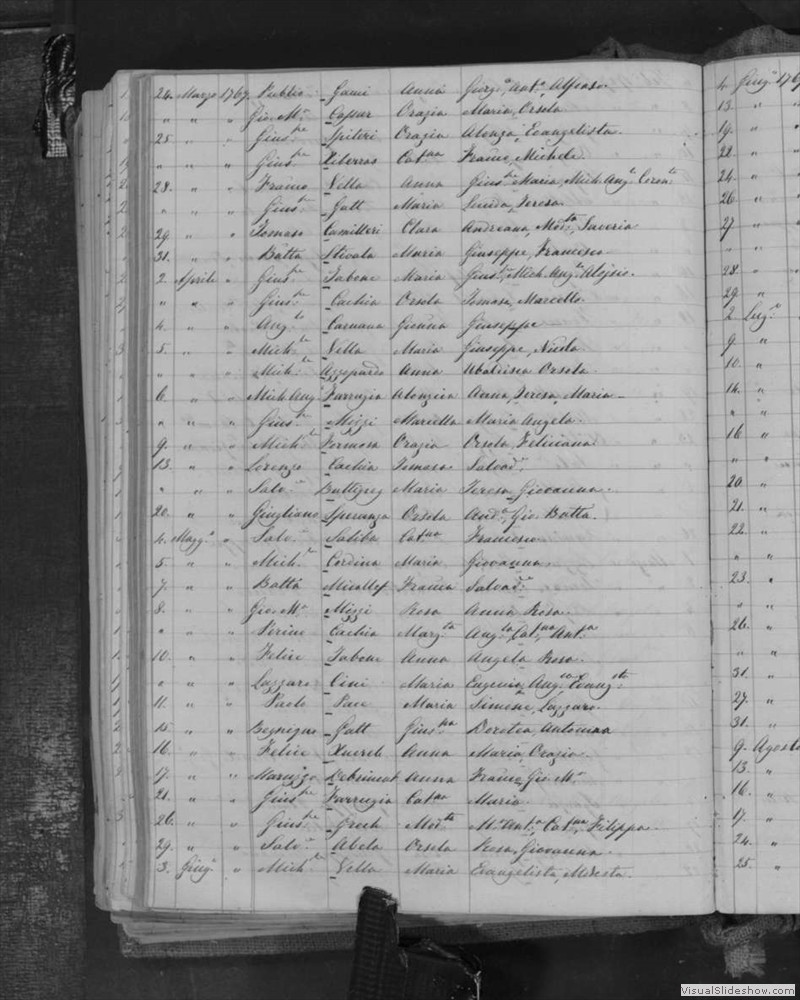 24. Marzo 1767. Publio Gauci Anna Giorg.a Ant.a Alfonso.
" " " Gio. M.a Cassar Orazia Maria, Orsola
25. " " Gius.pe Spiteri Orazia Alonza Evangelista.
" " " Gius.pe Xiberras Cat.na Franc. Michele.
28. " " Franc.o Vella Anna Gius.pe Maria, Mich. Ang.
" " " Gius.pe Galt Maria Teresa.
29. " " Tomaso Camilleri Clara Andreana, Mod.ta Saveria
31. " " Batta Stivala Maria Giuseppe, Francesca
2. Aprile " Gius.pe Tabone Maria Gius.pe Mich. Ang.o Alessio.
" " " Gius.pe Cachia Orsola Tomaso, Marcello.
4. " " Aug.to Caruana Gioanna Giuseppe
5. " " Mich.le Vella Maria Giuseppe,
" " " Mich.le Azzopardo Anna Ubaldisca Orsola.
6. " " Mich. Ang. Farrugia Alonzia Anna, Teresa, Maria
" " " Gius.pe Mizzi Mariella Maria Angela.
9. " " Mich.le Formosa Orazia Orsola, Feliciana.
13. " " Lorenzo Cachia Tomasa Salvad.e
" " " Salv.e Buttigieg Maria Teresa, Giovanna.
20. " " Giugliano Speranza Orsola And.a Gio. Batta.
4. Magg.o " Salv.e Saliba Cat.na Francesco
5. " " Mich.le Cordina Maria Giovanna.
7. " " Batta Micallef Franca Salvad.e
8. " " Gio. M.a Mizzi Rosa Anna Rosa.
" " " Cachia Marg.ta Aug.ta Cat.na Ant.a
10. " " Felice Tabone Anna Angela Rosa.
" " " Lazzaro Cini Maria Eugenia, Aug.na Evang.sta
11. " " Paolo Pace Maria Simone, Lazzaro.
15. " " Galt Gius.pa Dorotea, Antonina
16. " " Felice Xuereb Anna Maria, Orazio.
17. " " Maruzzo Debrincat Anna Franc. Gio. M.a
21. " " Gius.pe Farrugia Cat.na Maria
26. " " Gius.pe Grech Mod.ta M.a Ant.a Cat.na Filippa.
29. " " Salv.e Abela Orsola Rosa, Giovanna.
3. Giug.o " Mich.le Vella Maria Evangelista, Modesta.
4. Giug.o 1767
13. " "
19. "
22. "
24. "
26. "
27. "
" "
28. "
29. "
2. Lug.o
9. "
10. "
14. "
" "
16. "
" "
20. "
21. "
22. "
" "
23. "
" "
26. "
" "
31. "
27. "
31. "
9. Agosto
13. "
16. "
17. "
24. "
25. "
VisualSlideshow.com